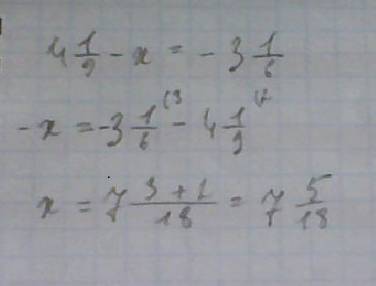 4 1/9 - x = - 3 1/6
- x = -3 1/6 (3 - 4 1/9 (2
x = 7 (3 + 2)/18 = 7 5/18